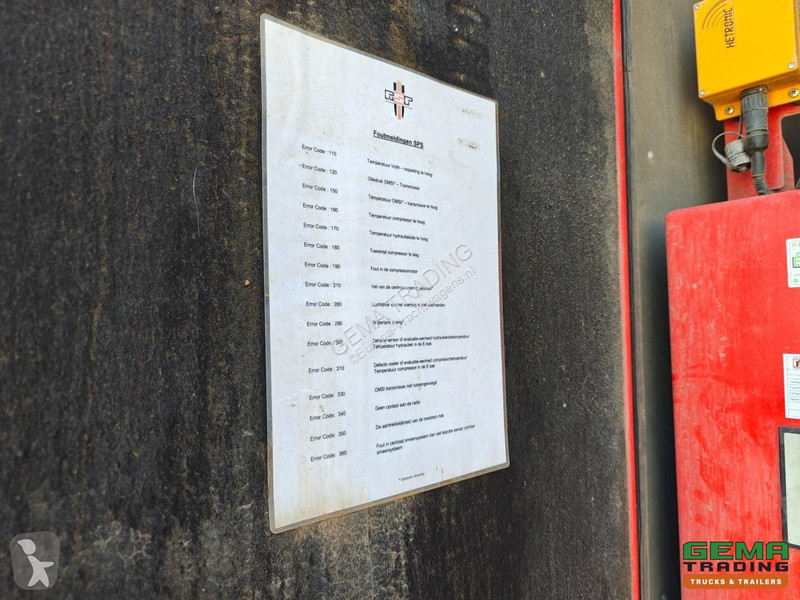 HETRONIC
Foutmeldingen SPS
Error Code : 110 Temperatuur Voith – koppeling te hoog
Error Code : 120 Oliedruk OMSI* – Transmissie
Error Code : 150 Temperatuur OMSI* – transmissie te hoog
Error Code : 160 Temperatuur compressor te hoog
Error Code : 170 Temperatuur hydrauliekolie te hoog
Error Code : 180 Toerental compressor te laag
Error Code : 190 Fout in de compressormotor
Error Code : 210 van de
Error Code : 280 Luchtdruk van het voertuig niet voorhanden
Error Code : 290 Watertank
Error Code : 300 Defecte sensor of evaluatie-eenheid hydraulieolietemperatuur
Temperatuur hydrauliek in de E-bak
Error Code : 310 Defecte sensor of evaluatie-eenheid compressortemperatuur
Temperatuur compressor in de E-bak
Error Code : 330 OMSI transmissie niet tussengevoegd
Error Code : 340 Geen contact aan de radio
Error Code : 350 De aantrekkelijkheid van de noodrem niet
Error Code : 360 Fout in centraal smeersysteem dan wel kapotte sensor centraal
smeersysteem
GEMA TRADING
GEMA
TRADING
TRUCKS & TRAILERS